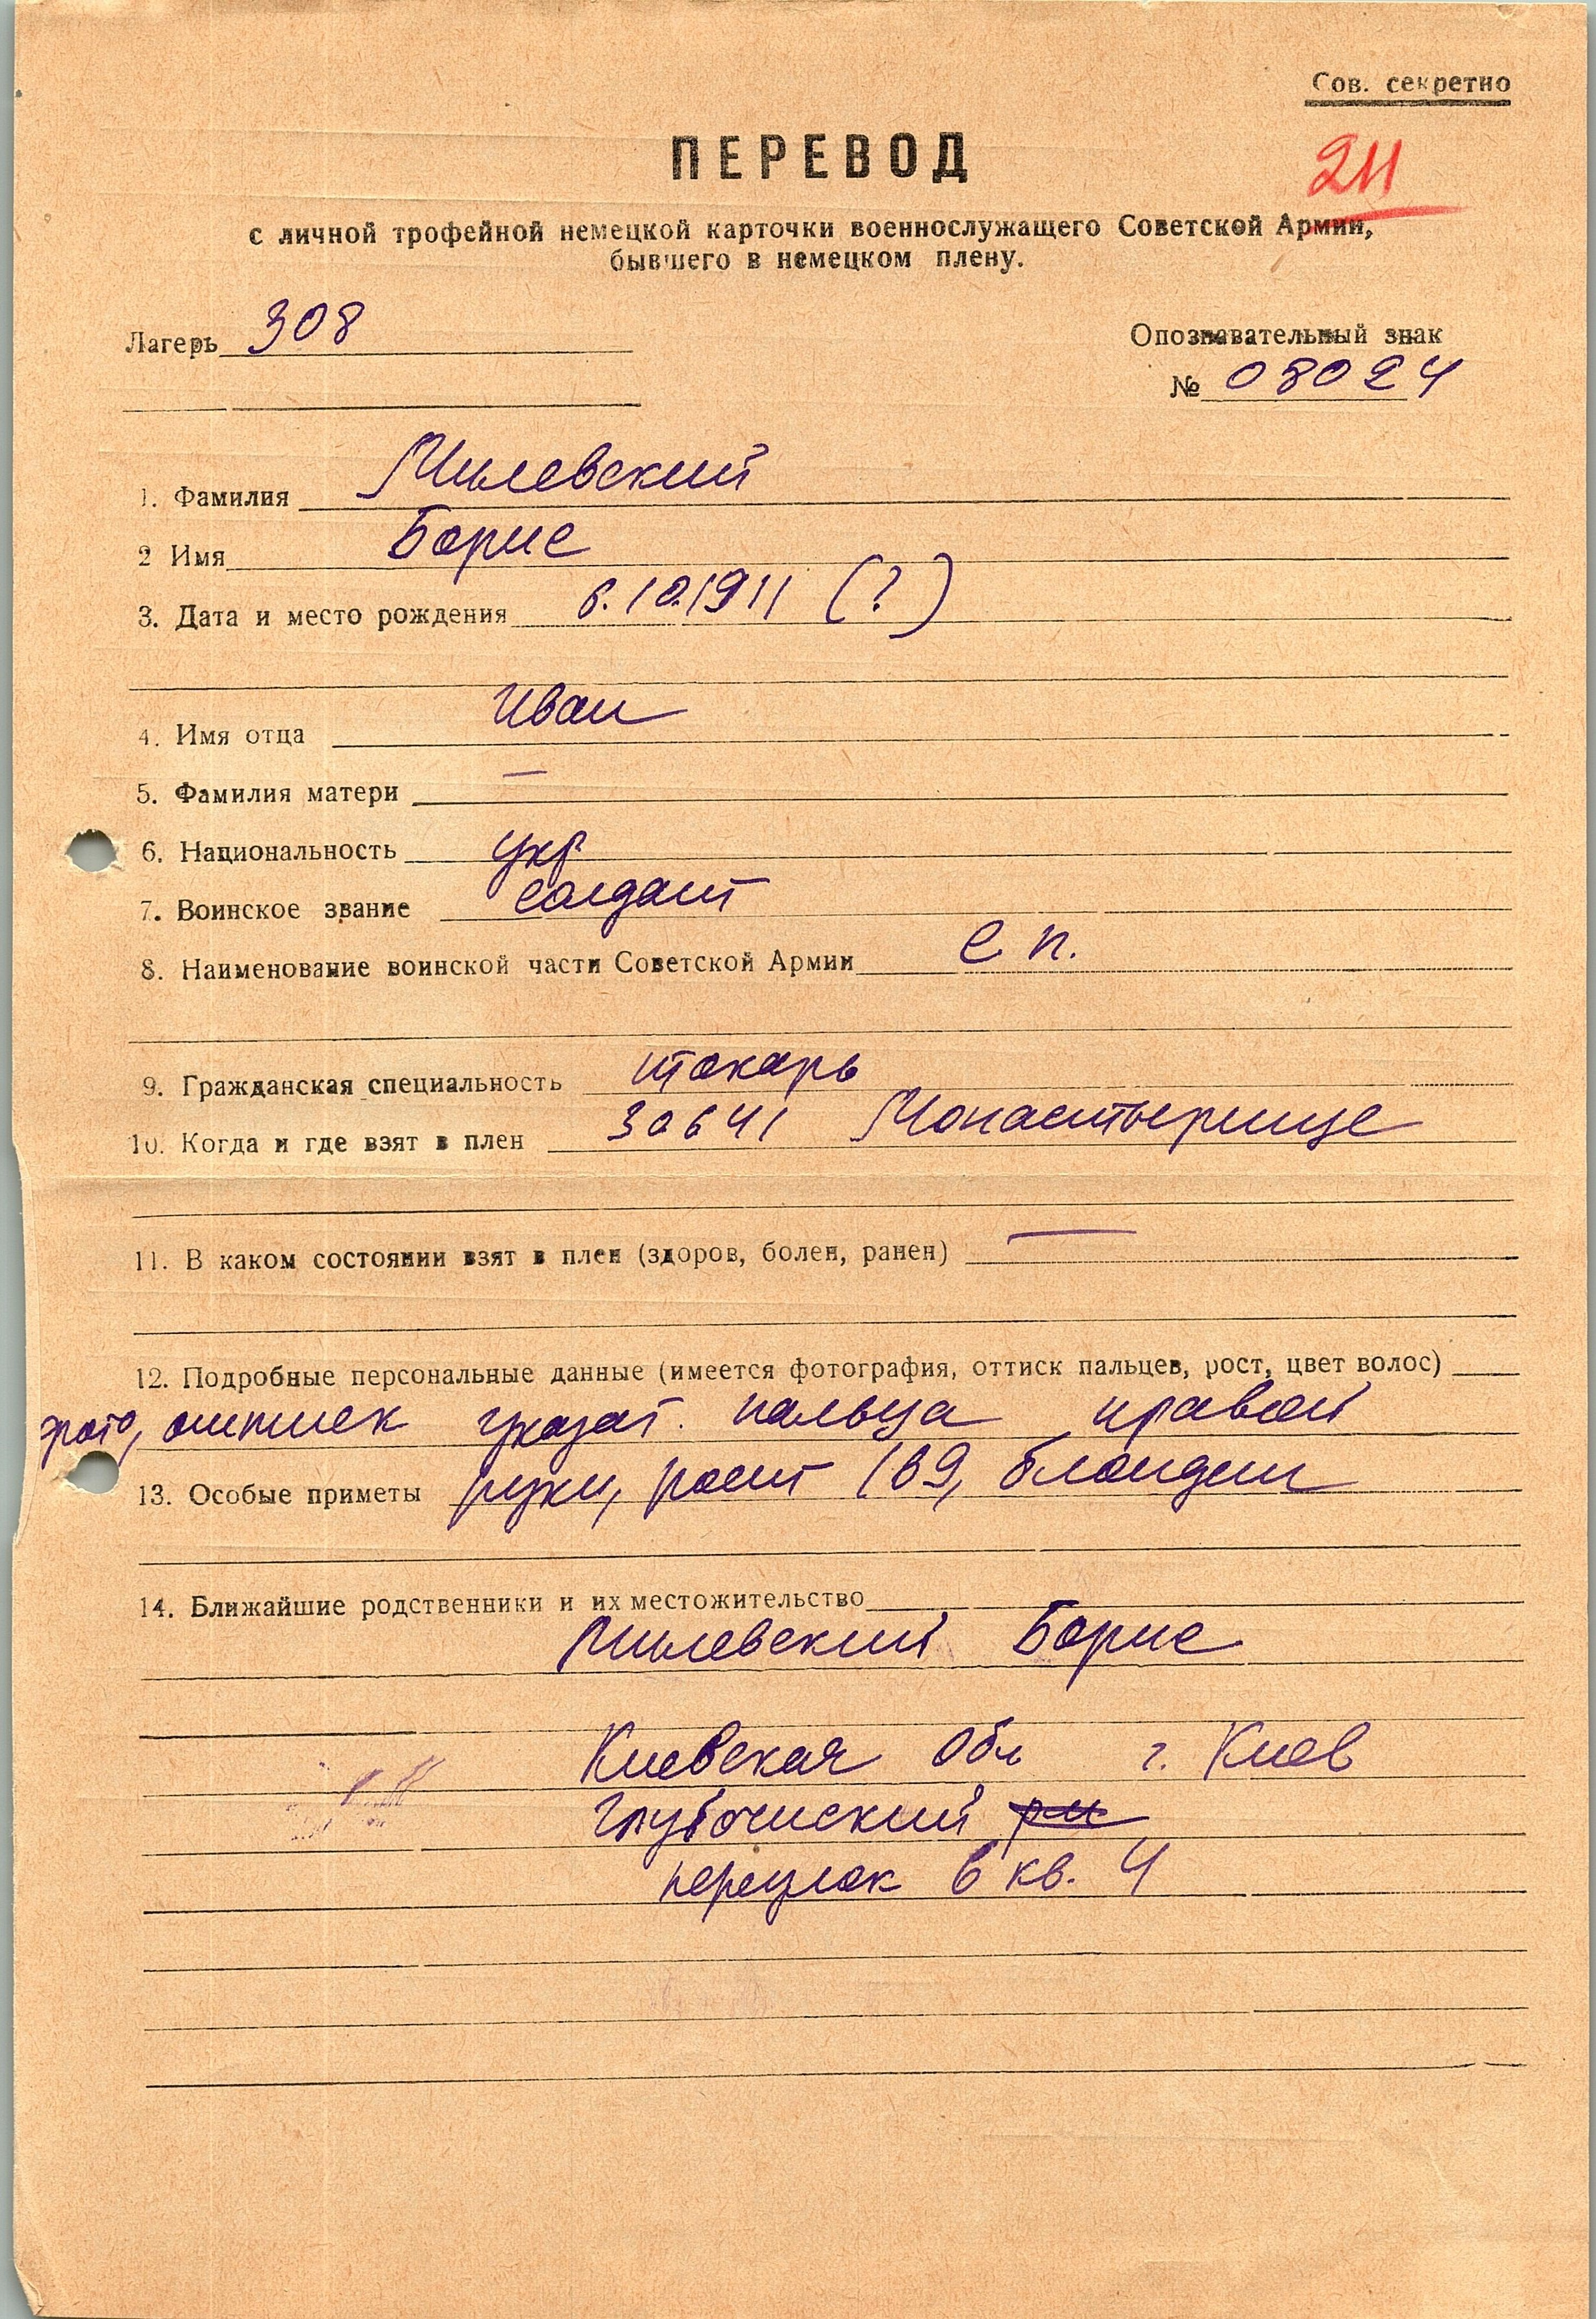 Сов. секретно
ПЕРЕВОД
211
с личной трофейной немецкой карточки военнослужащего Советской Армии,
бывшего в немецком плену.
Лагерь 308
Опознавательный знак
№ 08024
1. Фамилия Милевский
2 Имя Борис
3. Дата и место рождения 6.10.1911 (?)
4. Имя отца Иван
5. Фамилия матери —
6. Национальность укр
7. Воинское звание солдат
8. Наименование воинской части Советской Армии с п.
9. Гражданская специальность токарь
10. Когда и где взят в плен 30641 Монастырище
11. В каком состоянии взят в плен (здоров, болен, ранен) —
12. Подробные персональные данные (имеется фотография, оттиск пальцев, рост, цвет волос)
фото, оттиск указат. пальца правой
13. Особые приметы руки, рост 169, блондин
14. Ближайшие родственники и их местожительство
Милевский Борис
Киевская обл г. Киев
Глубочиский
переулок 6 кв. 4